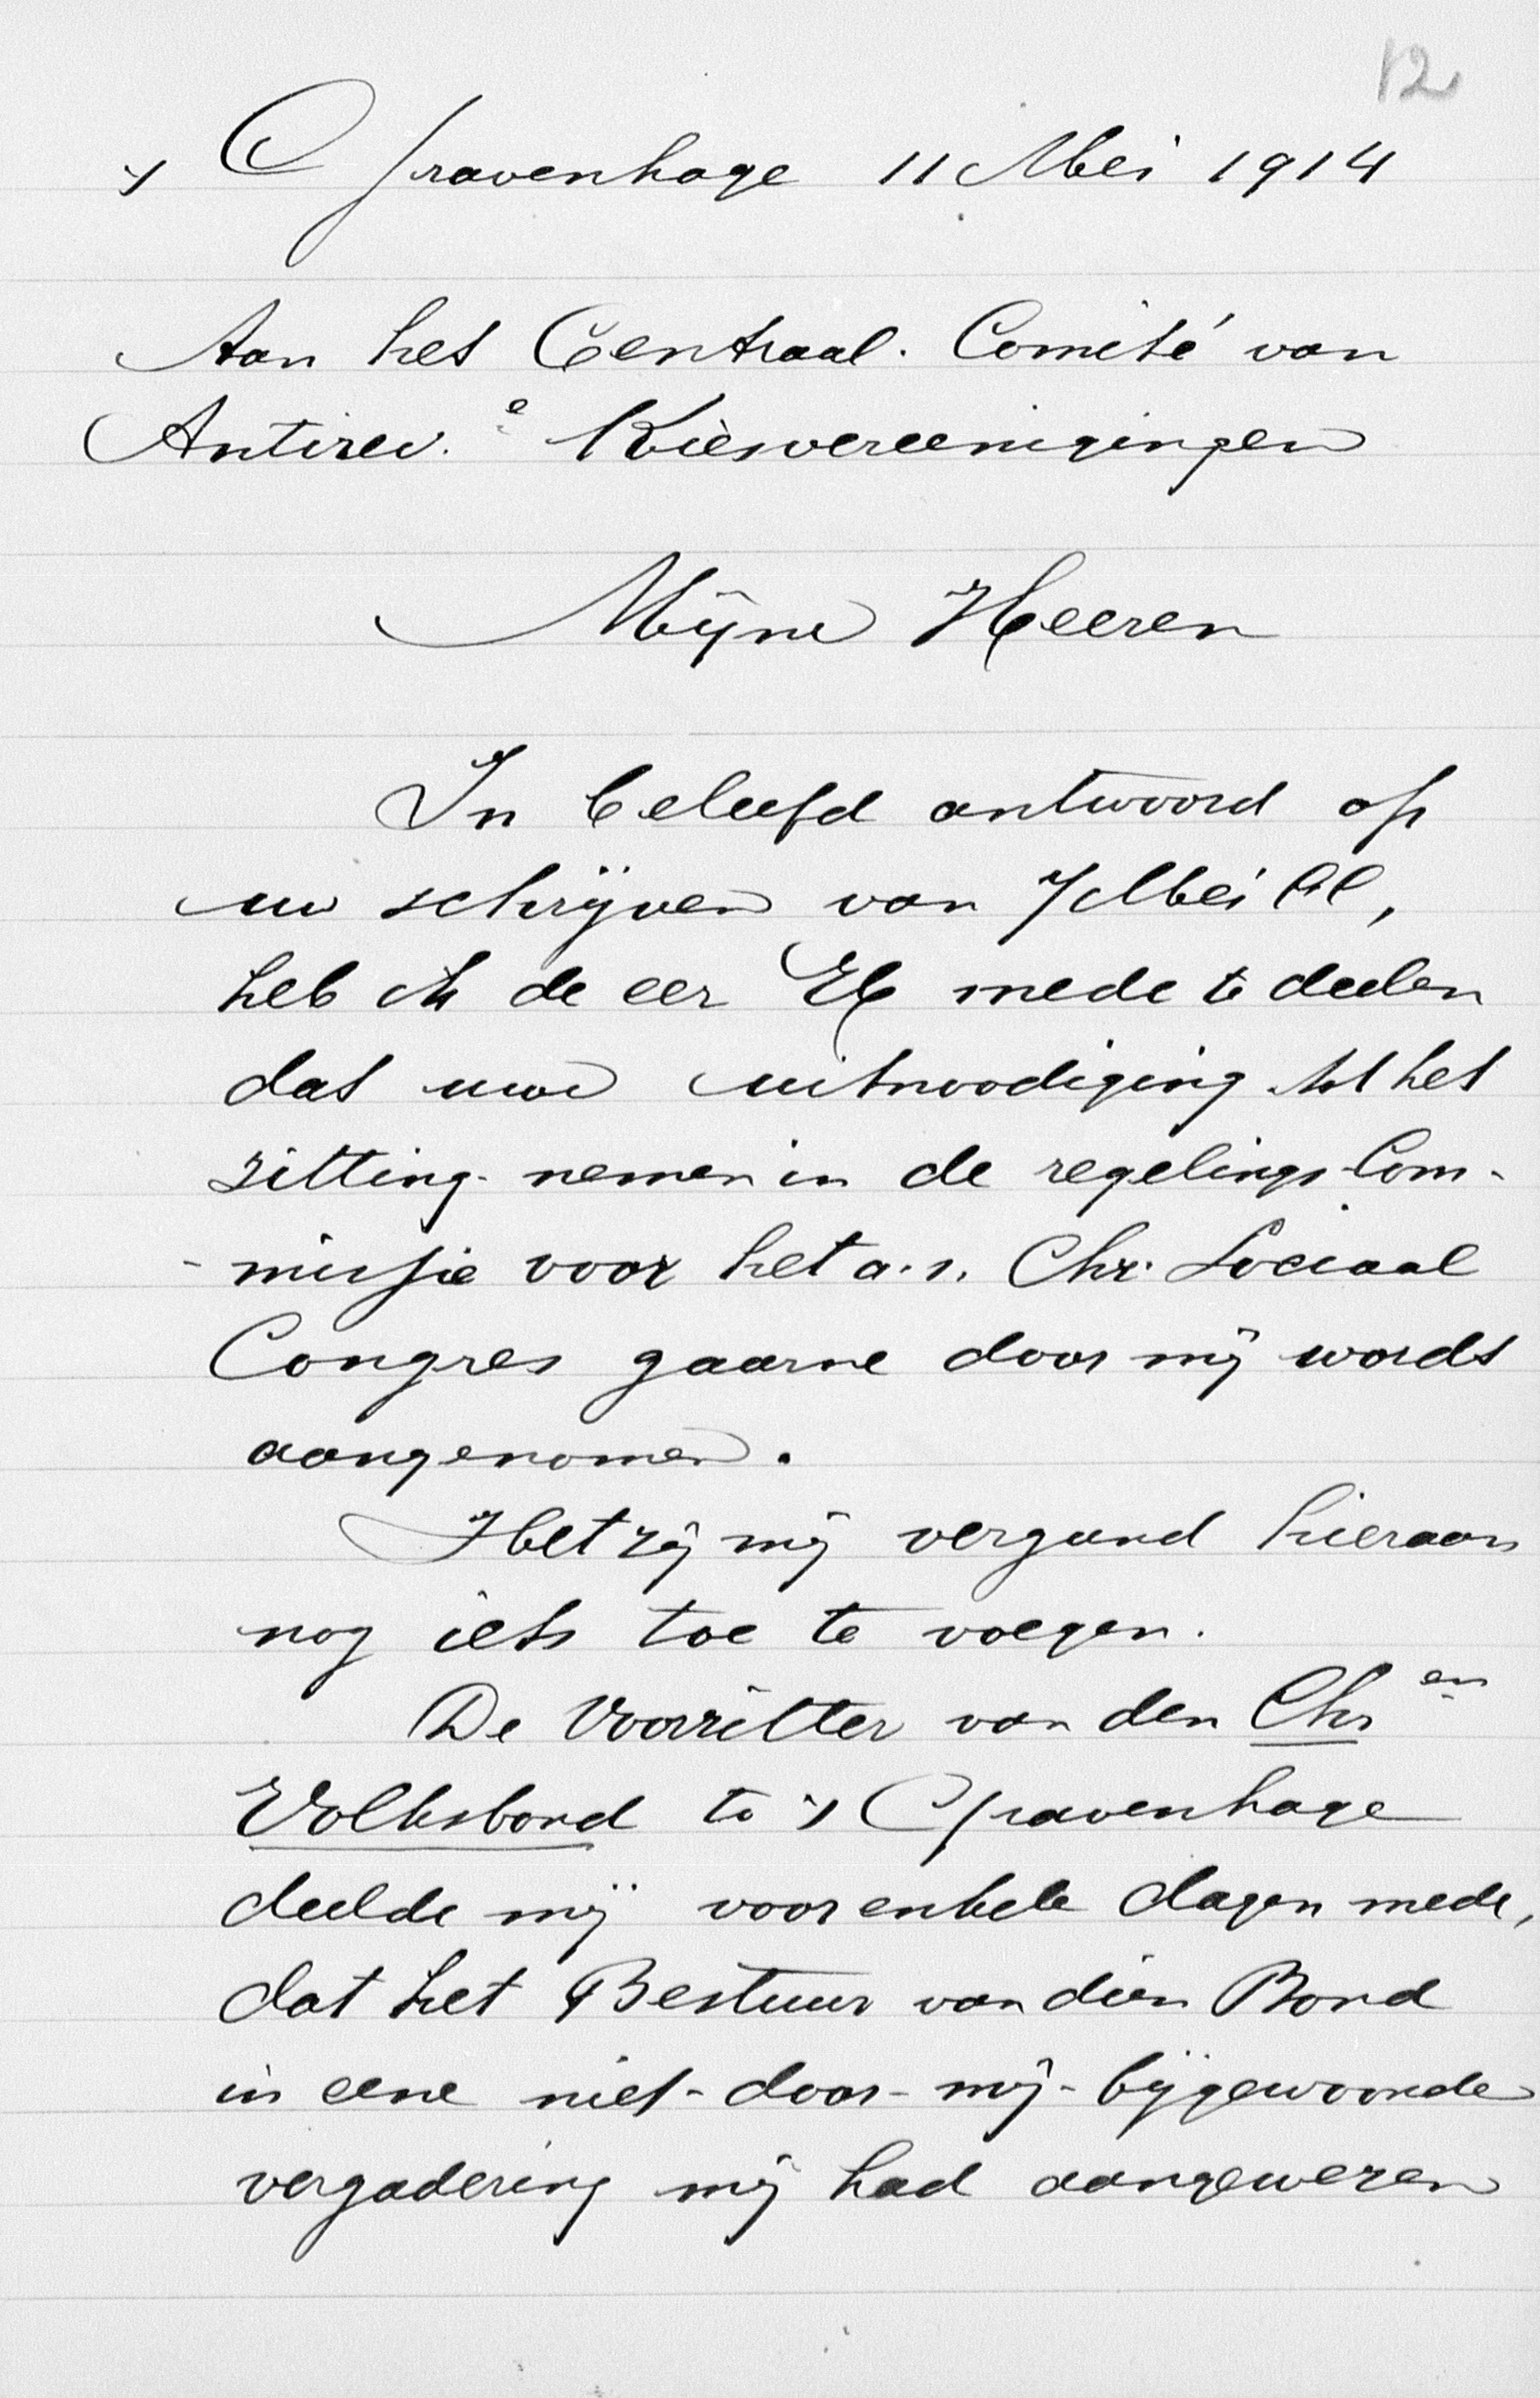 12
's Gravenhage 11 Mei 1914
Aan het Centraal. Comité van
Antirev.e Kiesvereenigingen
Mijne Heeren
In beleefd antwoord op
uw schrijven van 7 Mei ll,
heb ik de eer UE mede te deelen
dat uwe uitnoodiging tot het
zitting-nemen in de regelings-Com-
-missie voor het a.s. Chr. Sociaal
Congres gaarne door mij wordt
aangenomen.
Het zij mij vergund hieraan
nog iets toe te voegen.
De Voorzitter van den Chr en
Volksbond te 's Gravenhage
deelde mij voor enkele dagen mede,
dat het Bestuur van dien Bond
in eene niet-door-mij-bijgewoonde
vergadering mij had aangewezen